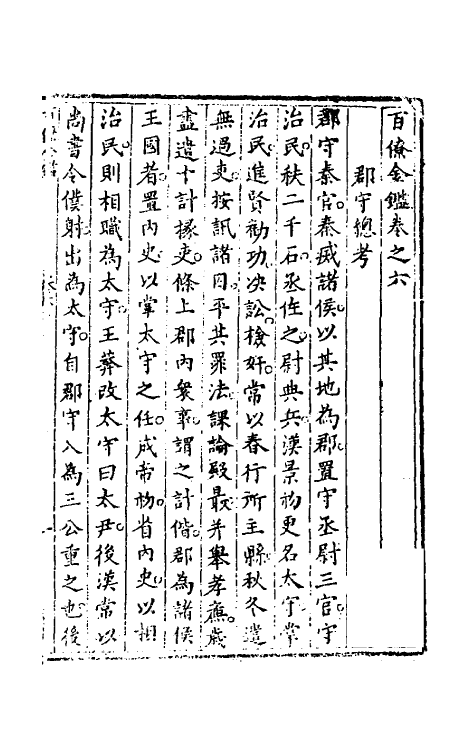 百僚金鑑卷之六
郡守總考
郡守秦官秦滅諸侯以其地為郡置守丞尉三官守
治民秩二千石丞佐之尉典兵漢景初更名太守掌
治民進賢勸功决訟檢奸常以春行所主縣秋冬遣
無過吏按訊諸囚平其罪法課論殿最并舉孝廉歲
盡遣上計掾吏條上郡內衆事謂之計偕郡為諸侯
王國者置內史以掌太守之任成帝初省內史以相
治民則相職為太守王莽改太守曰太尹後漢常以
尚書令僕射出為太守自郡守入為三公重之也後